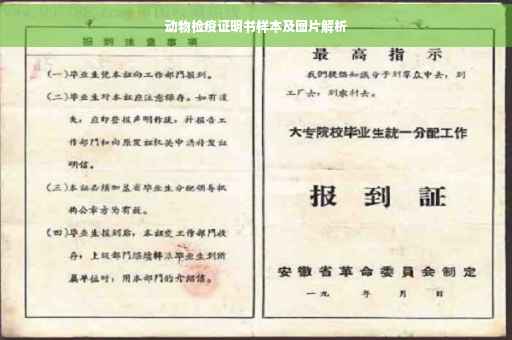 动物检疫证明书样本及图片解析
报到注意事项
(一)毕业生凭本证向工作部门报到。
(二)毕业生对本证应注意保存。如有遗
失,应即登报声明作废,并报告工
作部门和向原发证机关申请补发证
明信。
(三)本证必须加盖省毕业生分配领导机
构公章方为有效。
(四)毕业生报到后,本证交工作部门收
存;上级部门继续转派毕业生到所
属单位时,用本部门的介绍信。
最高指示
我们提倡知识分子到群众中去,到
工厂去,到农村去。
大专院校毕业生統一分配工作
报到証
安徽省革命委員会制定
一九 年 月 日